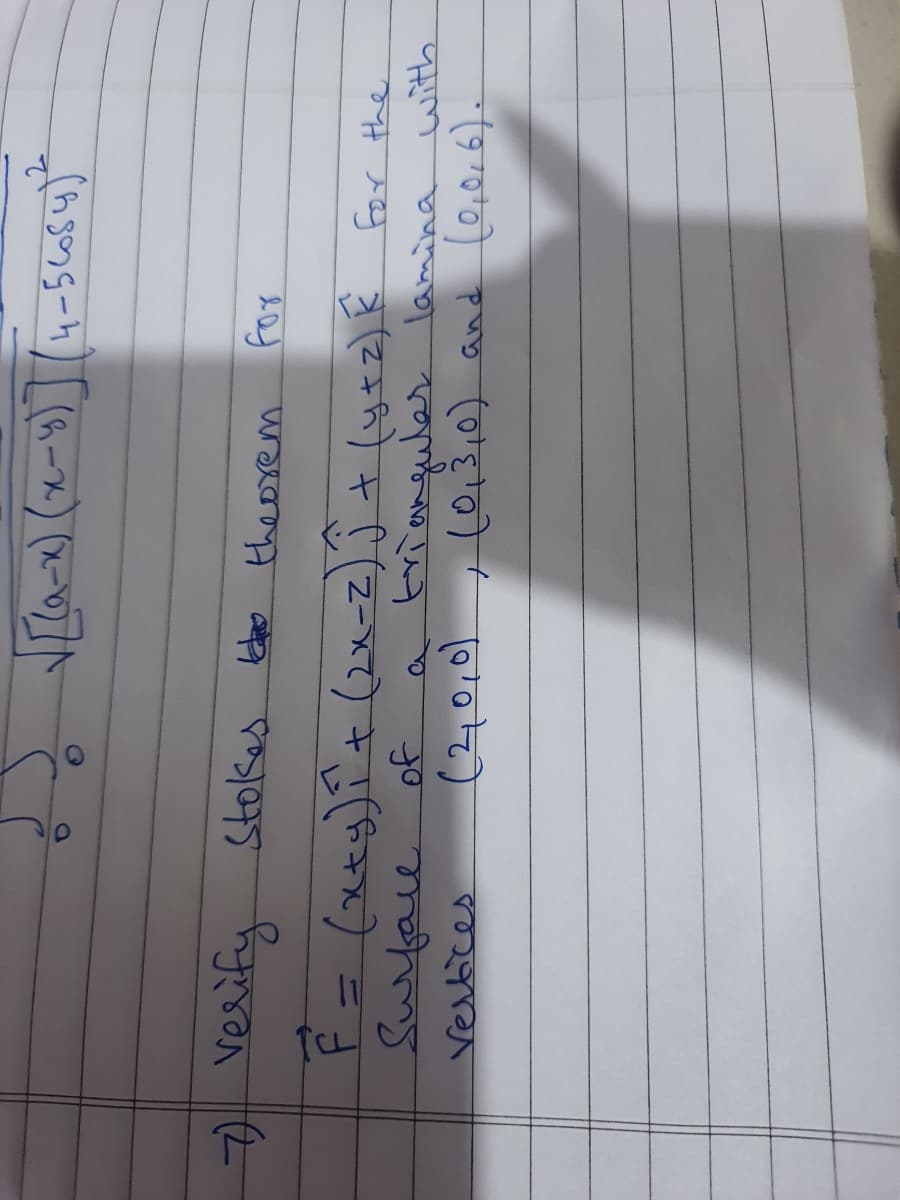 ∫₀ ∫₀ √[(a-x)(x-y)] (4-5cosy)²
7) Verify Stokes theorem for
F⃗ = (x+y)î + (2x-z)ĵ + (y+z)k̂ for the
Surface of a triangular lamina with
vertices (2,0,0), (0,3,0) and (0,0,6).